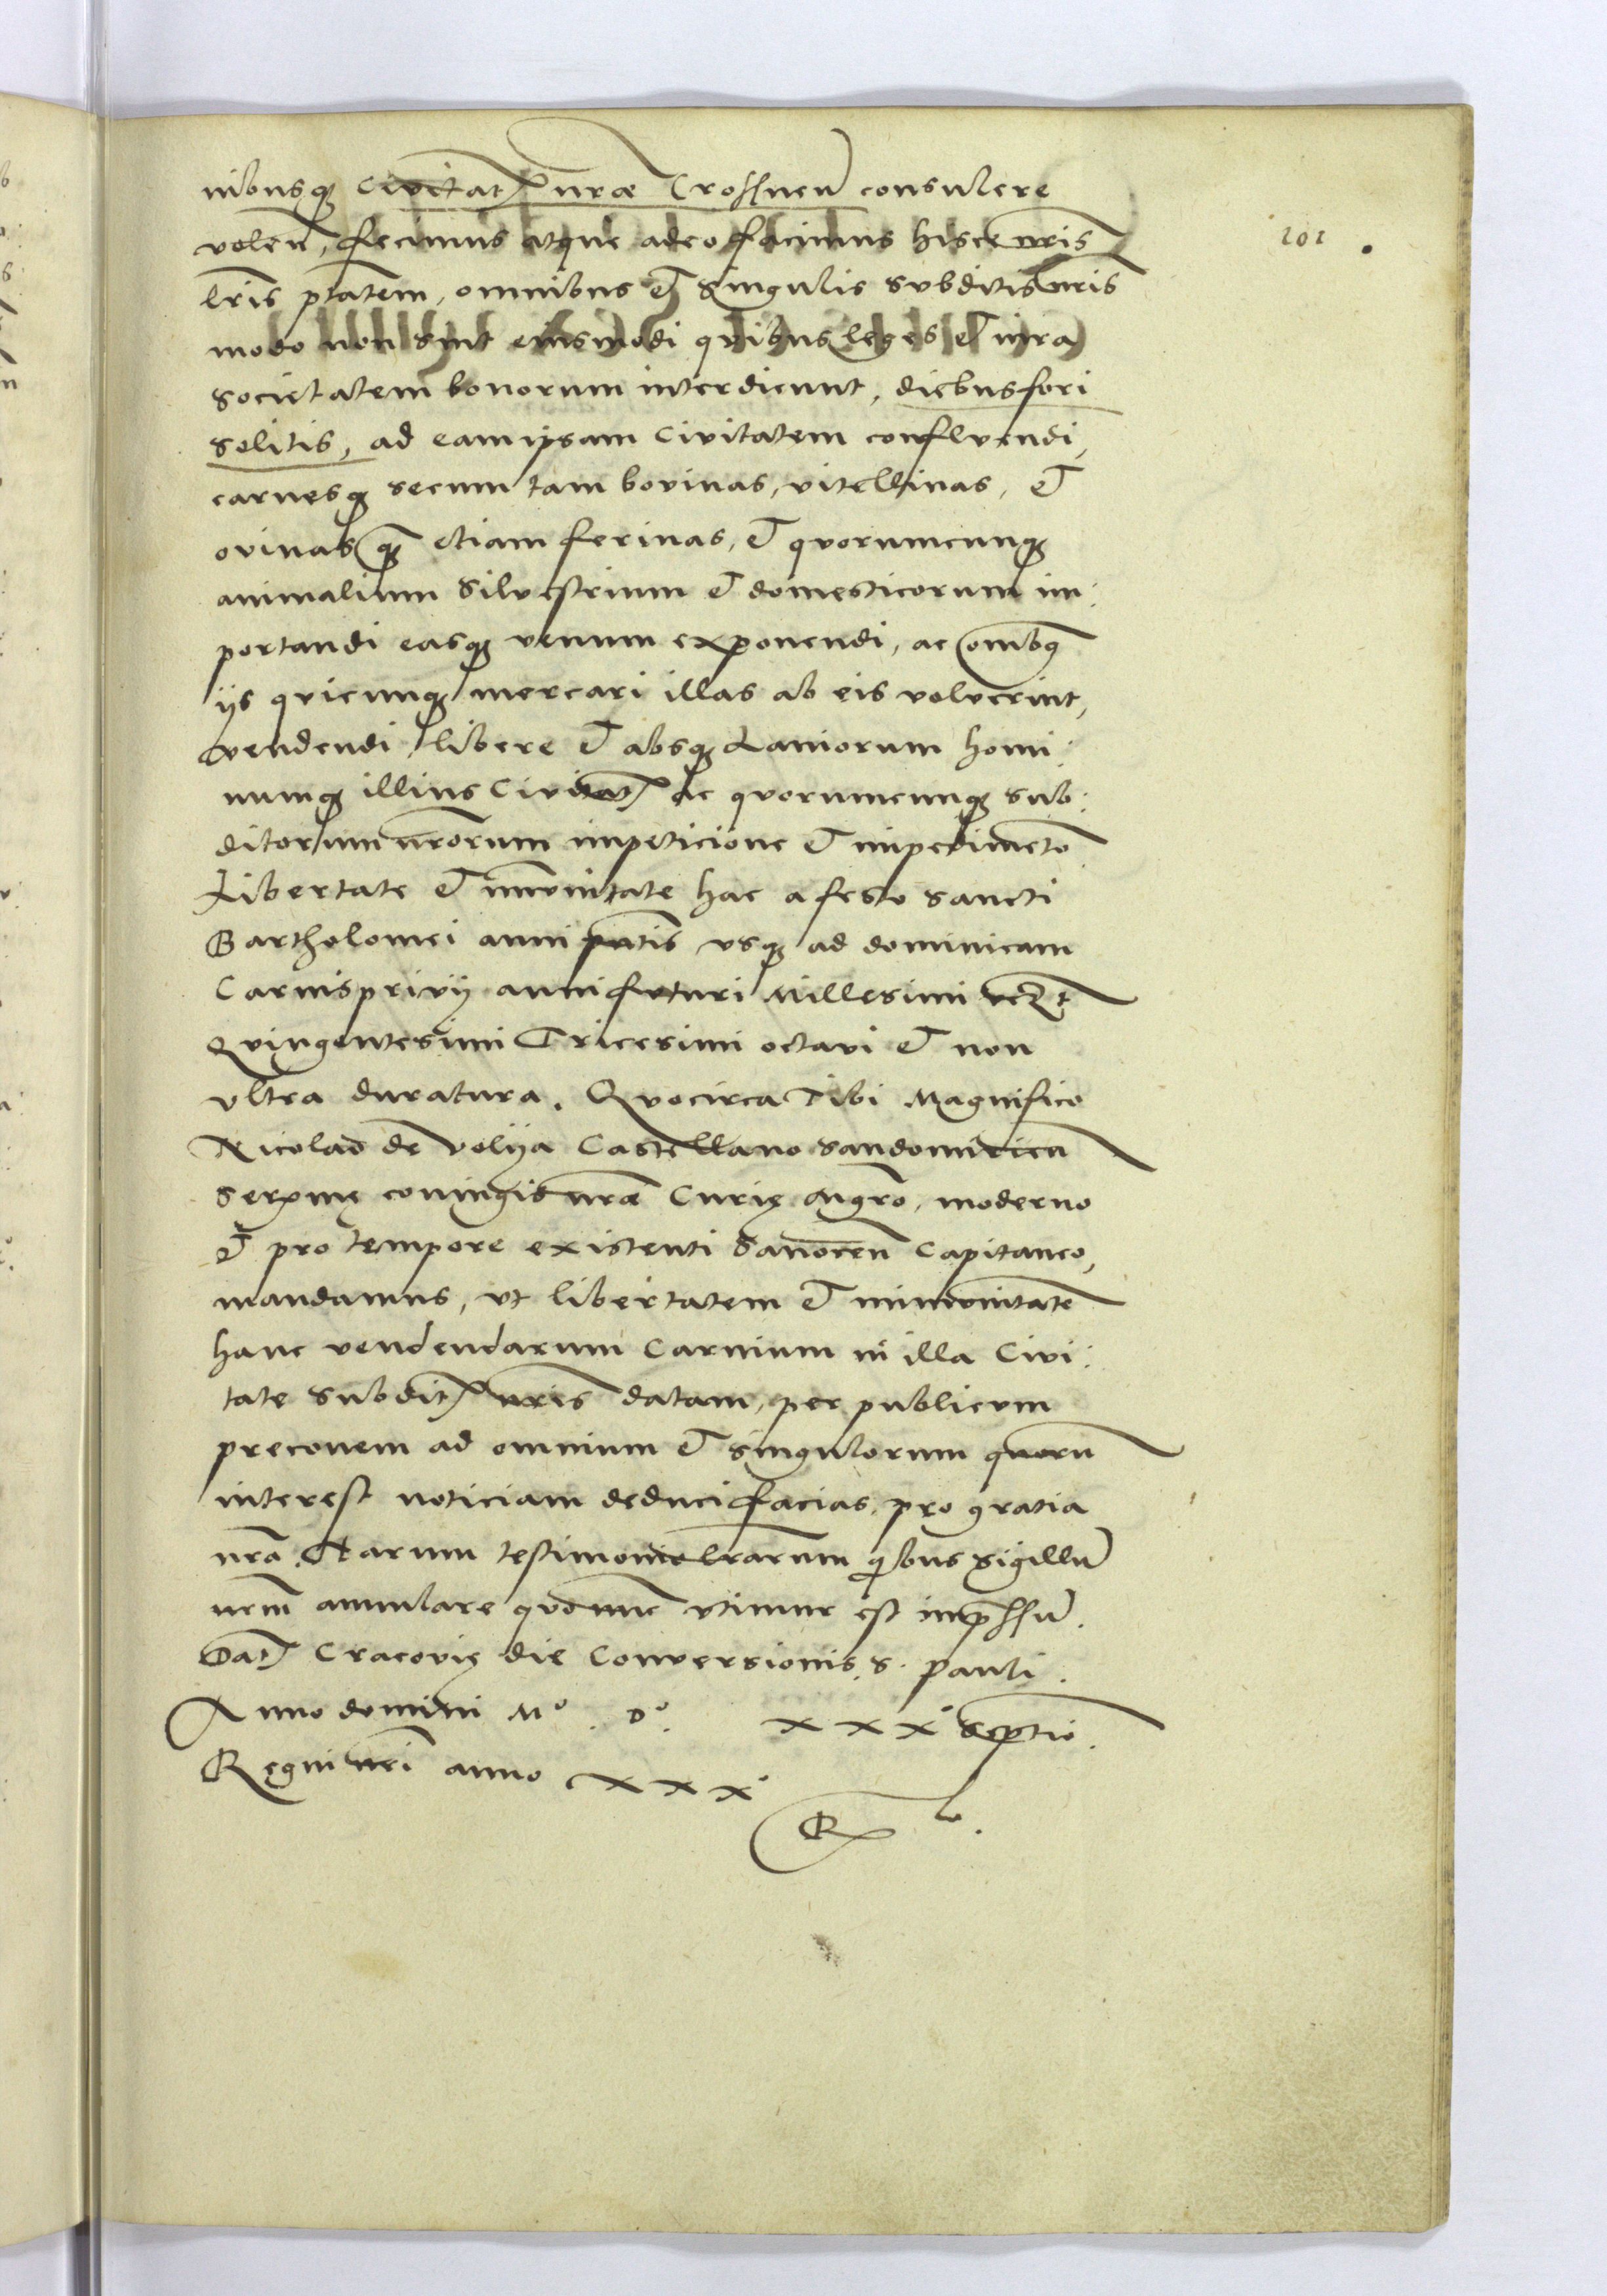 nibusq Civitat nrae Crossnen consulere
volen, fecimus atque adeo facimus hisce nris
lris ptatem, omnibus et singulis subditis nris
modo non sint eiusmodi quibus leges et iura
societatem bonorum interdicunt, diebus fori
solitis, ad eam ipsam Civitatem confluendi,
carnesq secum tam bovinas, vitellinas, et
ovinas q etiam ferinas, et quorumcunq
animalium Silvestrium et domesticorum im:
portandi easq venum exponendi, ac omibq
ijs quicunq mercari illas ab eis voluerint,
vendendi, libere et absq Laniorum homi:
numq illius Civitat ac quorumcunq sub:
ditorum nrorum impeticione et impedimeto
Libertate et imunitate hac a festo Sancti
Bartholomei anni pntis usq ad dominicam
Carnisprivij anni futuri Millesimi
Quingentesimi Tricesimi octavi et non
ultra duratura. Quocirca Tibi Magnifico
Nicolao de Volija Castellano Sandomirien
Serxme coniugis nrae Curie Mgro, moderno
et pro tempore existenti Sanocen Capitaneo,
mandamus, ut libertatem et immunitate
hanc vendendarum Carnium in illa Civi:
tate Subdit nris datam, per publicum
preconem ad omnium et singulorum quoru
interest noticiam deduci facias, pro gratia
nra. Harum testimonio lrarum qibus Sigillu
nrm annulare quo nunc utimur est impssu.
Dat Cracovie die Conversionis S. Pauli.
Anno domini Mo. Do. xxxo septio.
Regni nri anno xxxo
101